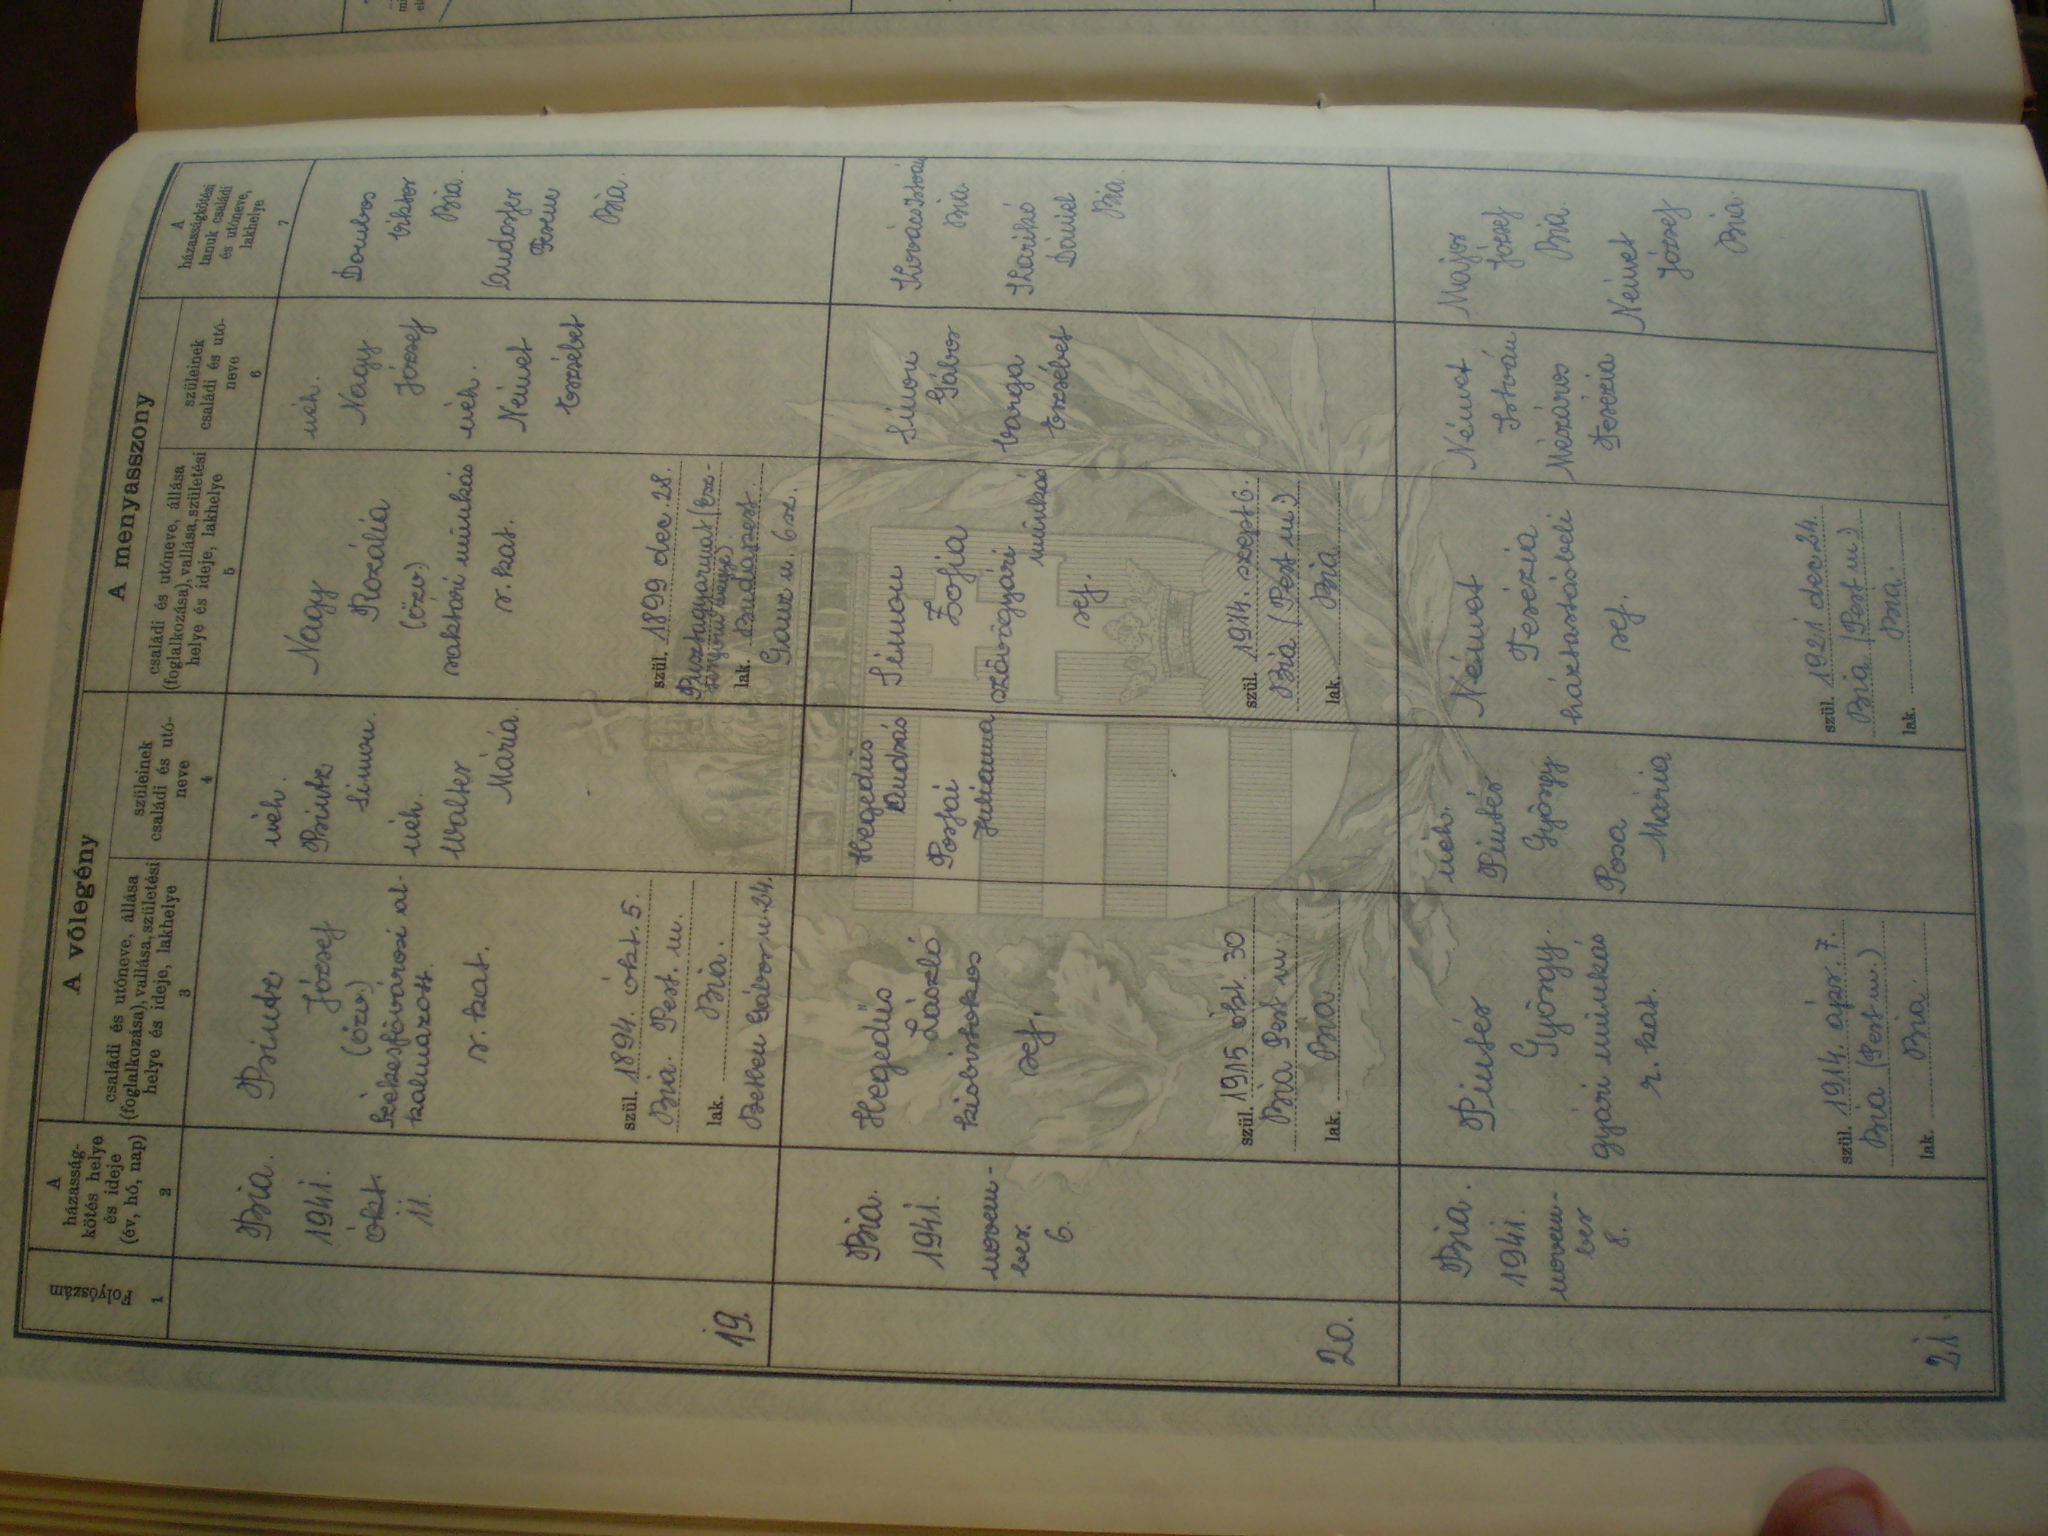 A vőlegény
A menyasszony
Folyószám
1
A
házasság-
kötés helye
és ideje
(év, hó, nap)
2
családi és utóneve, állása
(foglalkozása), vallása, születési
helye és ideje, lakhelye
3
szüleinek
családi és utó-
neve
4
családi és utóneve, állása
(foglalkozása), vallása, születési
helye és ideje, lakhelye
5
szüleinek
családi és utó-
neve
6
A
házasságkötési
tanuk családi
és utóneve,
lakhelye
7
19.
Bia.
1941.
okt.
11.
Printz
József
(özv.)
székesfővárosi al-
kalmazott.
r. kat.
szül. 1894. okt. 5.
Bia. Pest. m.
lak. Bia.
Bethlen Gábor u 24.
néh.
Printz
Simon.
néh.
Walter
Mária.
Nagy
Rozália
(özv.)
raktári munkás
r. kat.
szül. 1899 dec. 28.
lak. Budapest.
6 sz.
néh.
Nagy
József
néh.
Német
Erzsébet
Dombos
Viktor
Bia.
Ferenc
Bia.
20.
Bia.
1941.
novem-
ber.
6.
Hegedüs
László
kisbirtokos
ref.
szül. 1915 okt. 30
Bia Pest m.
lak. Bia
Hegedüs
András
Posfai
Julianna
Simon
Zsofia
szövőgyári
munkás
ref.
szül. 1914. szept 6.
Bia (Pest m.)
lak. Bia
Simon
Gábor
Varga
Erzsébet
Kovács István
Bia.
Dániel
Bia.
21.
Bia.
1941.
novem-
ber
8.
Pintér
György.
gyári munkás
r. kat.
szül. 1914. ápr. 7.
Bia (Pest m.)
lak. Bia.
néh.
Pintér
György
Posa
Mária
Német
Terézia
háztartásbeli
ref.
szül. 1921 dec 24.
Bia (Pest m.)
lak. Bia.
Német
István
Mészáros
Terézia
Major
József
Bia.
Német
József
Bia.